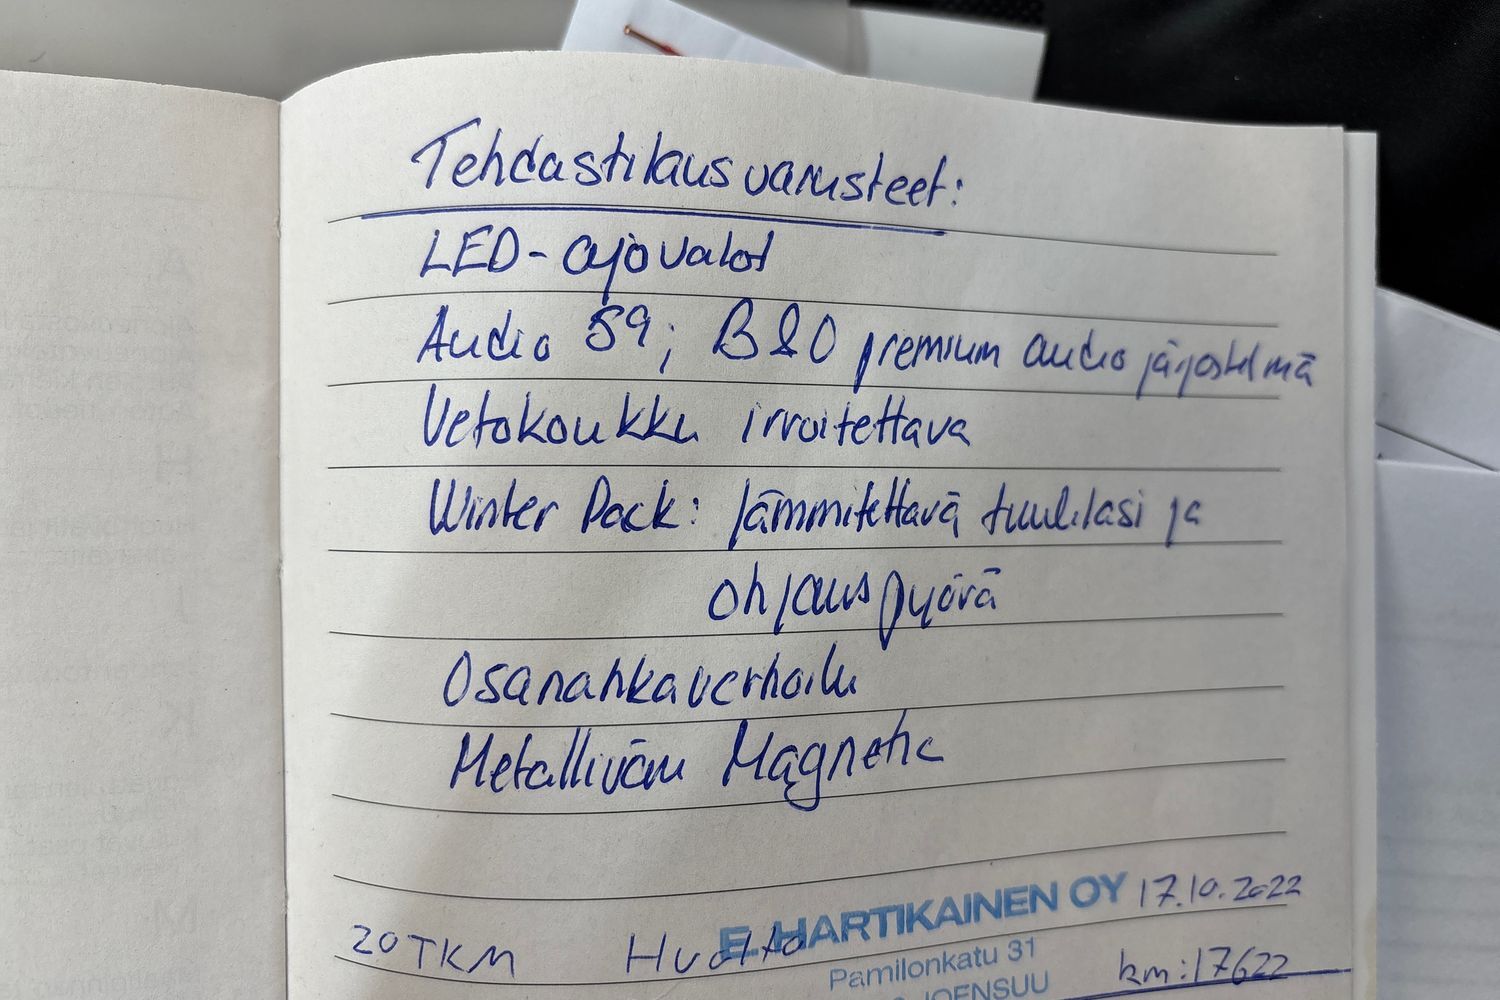 Tehdastilausvarusteet:
LED-ajovalot
Audio 59; B&O premium audiojärjestelmä
Vetokoukku irroitettava
Winter Pack: lämmitettävä tuulilasi ja
ohjauspyörä
Osanahkaverhoilu
Metalliväri Magnetic
E. HARTIKAINEN OY 17.10.2022
20TKM Huolto
Pamilonkatu 31
km:17622
JOENSUU